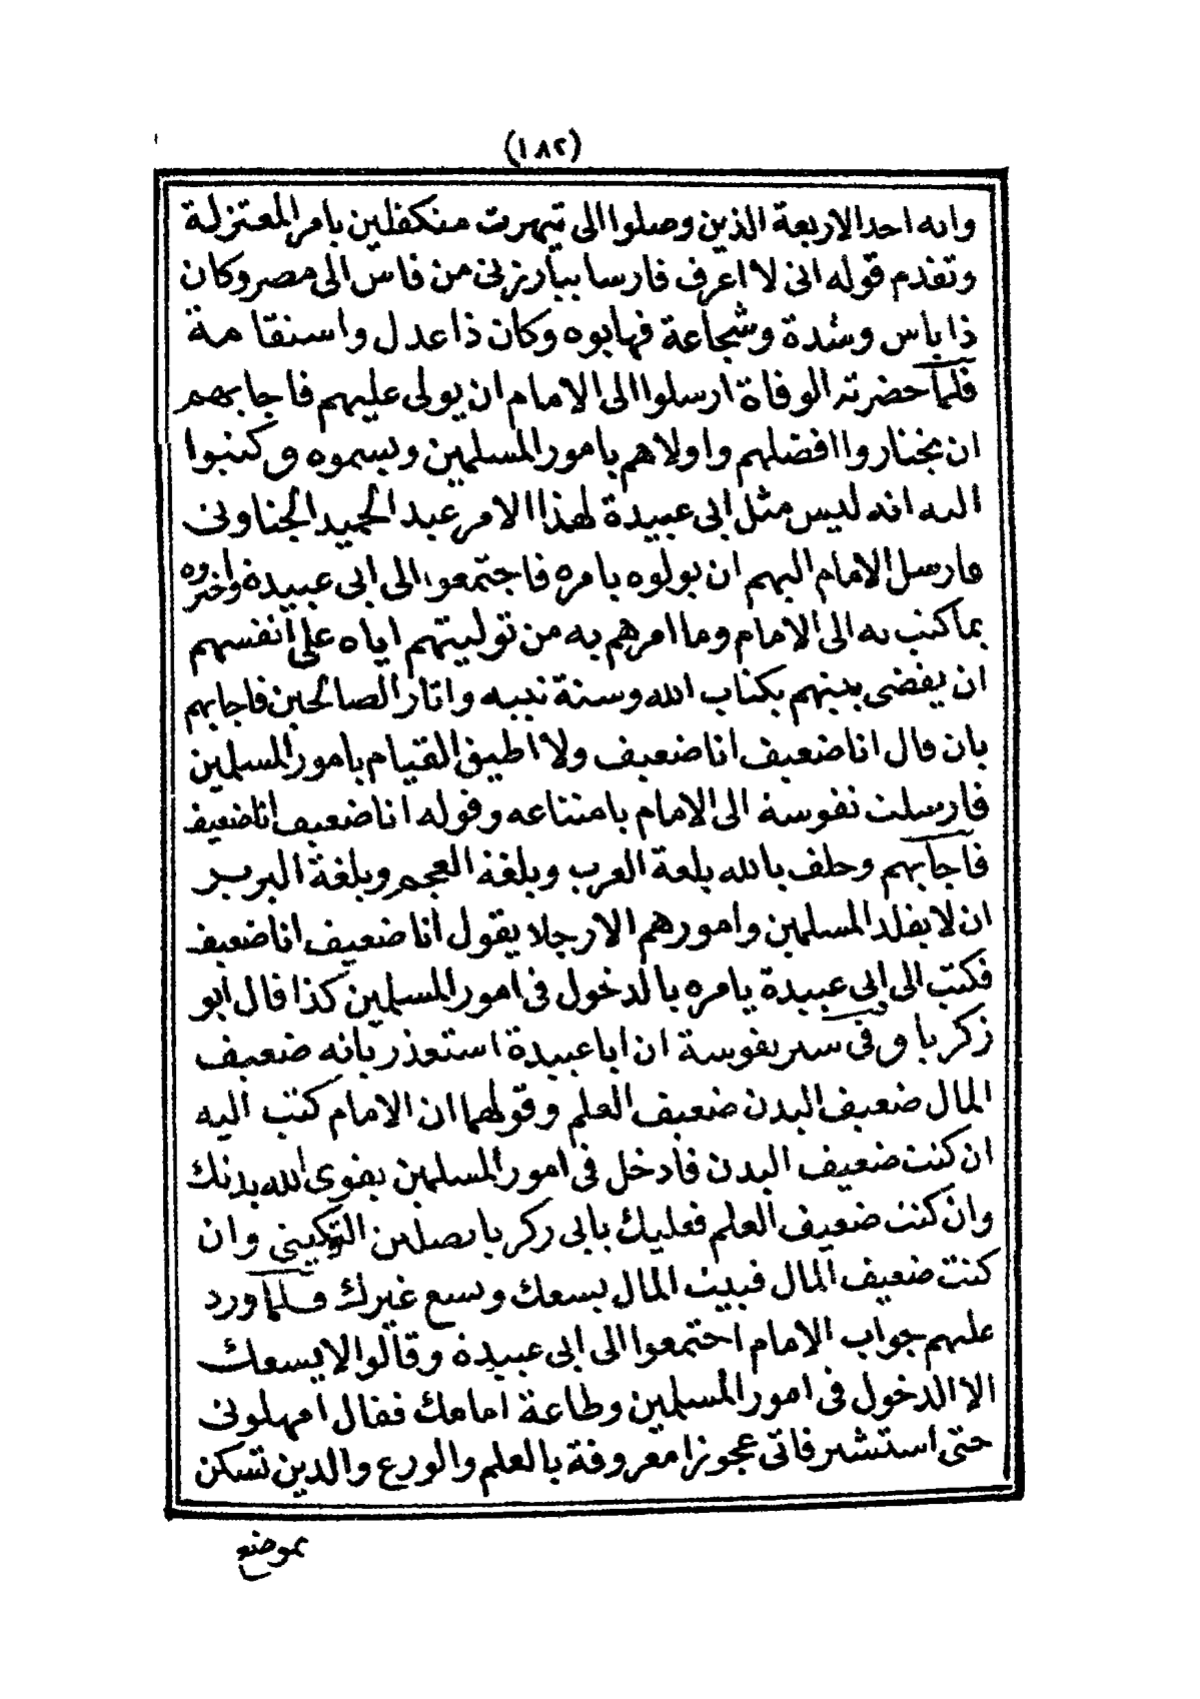 (١٨٢)
وانه احد الاربعة الذين وصلوا الى تيهرت متكفلين بامر المعتزلة
وتقدم قوله انى لا اعرف فارسا يبارزنى من فاس الى مصر وكان
ذا باس وشدة وشجاعة فهابوه وكان ذا عدل واستقامة
فلما حضرته الوفاة ارسلوا الى الامام ان يولى عليهم فاجابهم
ان يختاروا افضلهم واولاهم بامور المسلمين ويسموه وكتبوا
اليه انه ليس مثل ابى عبيدة لهذا الامر عبد الحميد الجناونى
فارسل الامام اليهم ان يولوه بامره فاجتمعوا الى ابى عبيدة واخبروه
بما كتب به الى الامام وما امرهم به من توليتهم اياه على انفسهم
ان يقضى بينهم بكتاب الله وسنة نبيه واثار الصالحين فاجابهم
بان قال انا ضعيف انا ضعيف ولا اطيق القيام بامور المسلمين
فارسلت نفوسة الى الامام بامتناعه وقوله انا ضعيف انا ضعيف
فاجابهم وحلف بالله بلغة العرب وبلغة العجم وبلغة البربر
ان لا يقلد المسلمين وامورهم الا رجلا يقول انا ضعيف انا ضعيف
فكتب الى ابى عبيدة يامره بالدخول فى امور المسلمين كذا قال ابو
زكريا وفى سير نفوسة ان ابا عبيدة استعذر بانه ضعيف
المال ضعيف البدن ضعيف العلم وقولهما ان الامام كتب اليه
ان كنت ضعيف البدن فادخل فى امور المسلمين يقوى الله بدنك
وان كنت ضعيف العلم فعليك بابى زكريا يصلتن التوكيتى وان
كنت ضعيف المال فبيت المال يسعك ويسع غيرك فلما ورد
عليهم جواب الامام اجتمعوا الى ابى عبيدة وقالوا لا يسعك
الا الدخول فى امور المسلمين وطاعة امامك فقال امهلونى
حتى استشير فاتى عجوزا معروفة بالعلم والورع والدين تسكن
بموضع